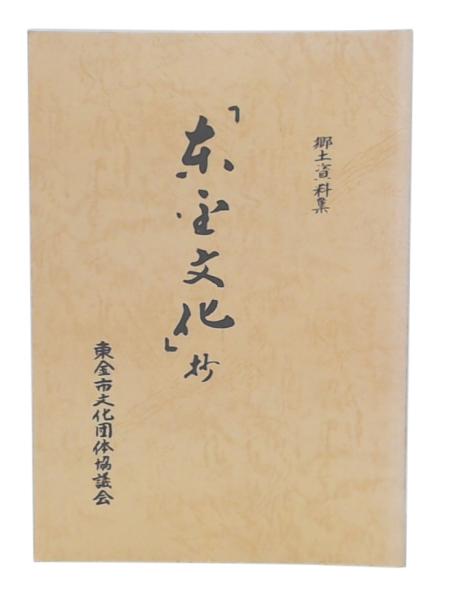 郷土資料集
「東金文化」抄
東金市文化団体協議会